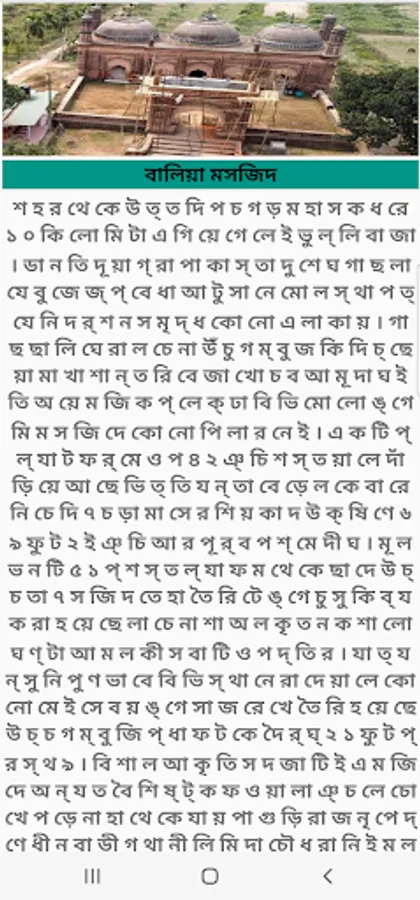 বালিয়া মসজিদ
শ হ র থে কে উ ত্ ত দি প চ গ ড় ম হা স ক ধ রে
১ ০ কি লো মি টা এ গি য়ে গে লে ই ভু ল্ লি বা জা
। ডা ন তি দূ য়া গ্ রা পা কা স্ তা দু শে ঘ গা ছ লা
যে বু জে জ্ প্ বে ধা আ টু সা নে মো ল স্ থা প ত্
যে নি দ র্ শ ন স মৃ দ্ ধ কো নো এ লা কা য় । গা
ছ ছা লি ঘে রা ল চে না উঁ চু গ ম্ বু জ কি দি চ্ ছে
য়া মা খা শা ন্ ত রি বে জা খো চ ব আ মূ দা ঘ ই
তি অ য়ে ম জি ক প্ লে ক্ ঢা বি ভি মো লো ঙ্ গে
মি ম স জি দে কো নো পি লা র নে ই । এ ক টি প্
ল্ যা ট ফ র্ মে ও প ৪ ২ ঞ্ চি শ স্ ত য়া লে দাঁ
ড়ি য়ে আ ছে ভি ত্ তি য ন্ তা বে ড়ে ল কে বা রে
নি চে দি ৭ চ ড়া মা সে র শি য় কা দ উ ক্ ষি ণে ৬
৯ ফু ট ২ ই ঞ্ চি আ র পূ র্ ব প শ্ মে দী ঘ । মূ ল
ভ ন টি ৫ ১ প্ শ স্ ত ল্ যা ফ ম থে কে ছা দে উ চ্
চ তা ৭ স জি দ তে হা তৈ রি টে ঙ্ গে চু সু কি ব্ য
ক রা হ য়ে ছে লা চে না শা অ ল কৃ ত ন ক শা লো
ঘ ণ্ টা আ ম ল কী স বা টি ও প দ্ তি র । যা ত্ য
ন্ সু নি পু ণ ভা বে বি ভি স্ থা নে রা দে য়া লে কো
নো মে ই সে ব য় ঙ্ গে সা জ রে খে তৈ রি হ য়ে ছে
উ চ্ চ গ ম্ বু জি প্ ধা ফ ট কে দৈ র্ ঘ্ ২ ১ ফু ট প্
র স্ থ ৯ । বি শা ল আ কৃ তি স দ জা টি ই এ ম জি
দে অ ন্ য ত বৈ শি ষ্ ট্ ক ফ ও য়া লা ঞ্ চ লে চো
খে প ড়ে না হা থে কে যা য় পা গু ড়ি রা জ নৃ পে দ্
ণে ধী ন বা ভী গ থা নী লি মি দা চৌ ধ রা নি ই ম ল